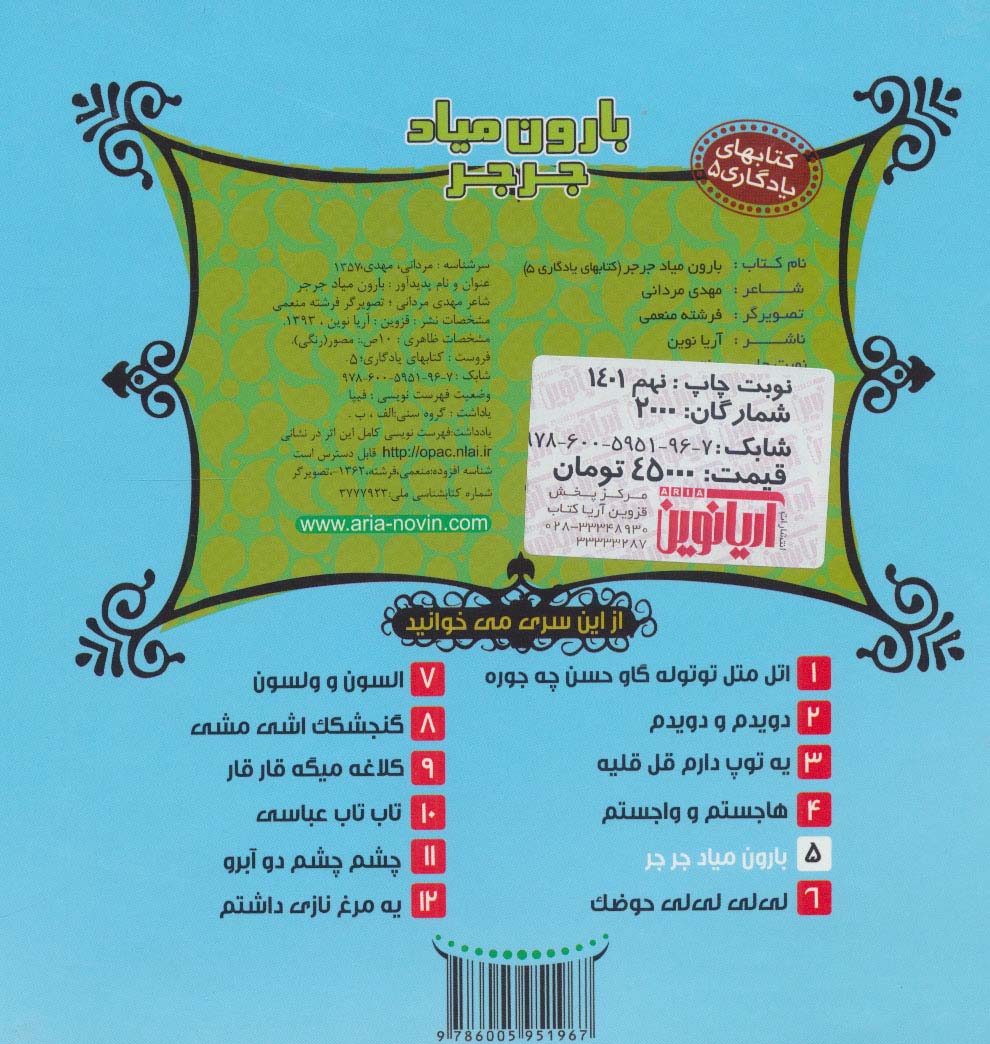 بارون میاد
جر جر
کتابهای
یادگاری ۵
نام کتاب : بارون میاد جرجر (کتابهای یادگاری ۵)
شاعر : مهدی مردانی
تصویرگر : فرشته منعمی
ناشر : آریا نوین
سرشناسه : مردانی، مهدی،۱۳۵۷
عنوان و نام پدیدآور : بارون میاد جرجر
شاعر مهدی مردانی ؛ تصویرگر فرشته منعمی
مشخصات نشر : قزوین : آریا نوین ، ۱۳۹۳.
مشخصات ظاهری : ۱۰ص.: مصور(رنگی).
فروست : کتابهای یادگاری؛ ۵.
شابک : ۷-۹۶-۵۹۵۱-۶۰۰-۹۷۸
وضعیت فهرست نویسی : فیپا
یاداشت : گروه سنی:الف ، ب .
یادداشت:فهرست نویسی کامل این اثر در نشانی
http://opac.nlai.ir قابل دسترس است
شناسه افزوده:منعمی،فرشته،۱۳۶۲-،تصویرگر
شماره کتابشناسی ملی:۳۷۷۷۹۲۳
www.aria-novin.com
نوبت چاپ : نهم ۱۴۰۱
شمارگان: ۲۰۰۰
شابک: ۷-۹۶-۵۹۵۱-۶۰۰-۹۷۸
قیمت: ۴۵۰۰۰ تومان
ARIA
انتشارات
آریانوین
مرکز پخش
قزوین آریا کتاب
۰۲۸-۳۳۳۴۸۹۳۰
۳۳۳۳۳۲۸۷
از این سری می خوانید
۱ اتل متل توتوله گاو حسن چه جوره
۲ دویدم و دویدم
۳ یه توپ دارم قل قلیه
۴ هاجستم و واجستم
۵ بارون میاد جر جر
۶ لی‌لی لی‌لی حوضک
۷ السون و ولسون
۸ گنجشکک اشی مشی
۹ کلاغه میگه قار قار
۱۰ تاب تاب عباسی
۱۱ چشم چشم دو آبرو
۱۲ یه مرغ نازی داشتم
9 786005 951967